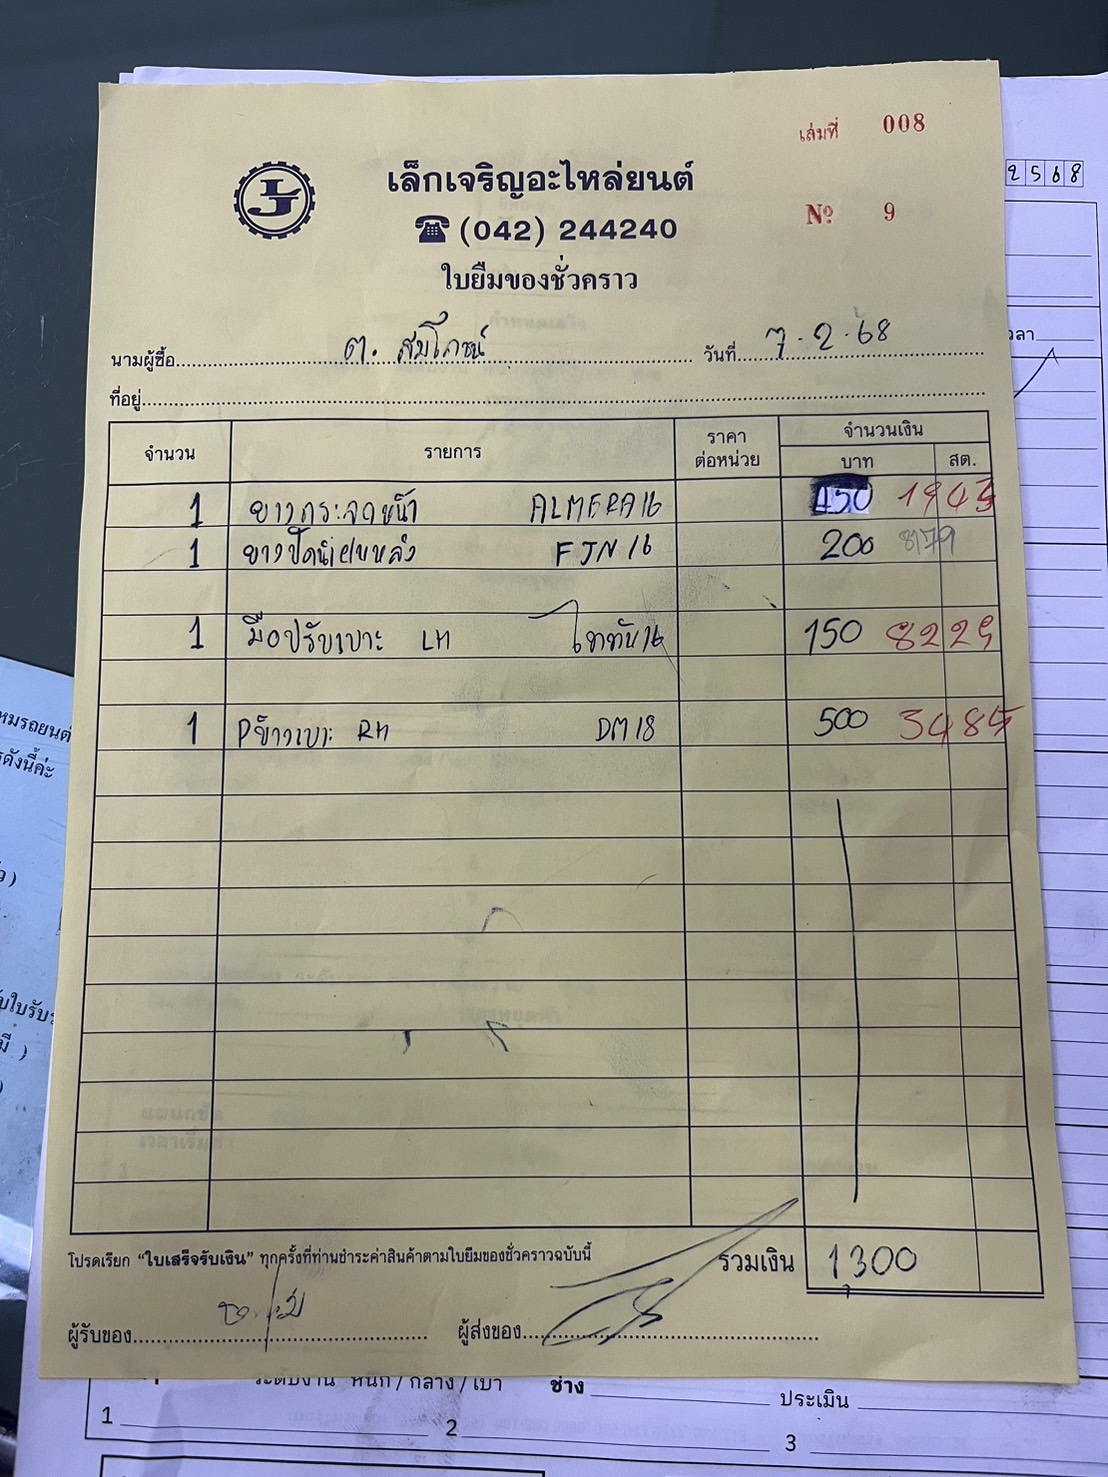 เล่มที่ 008
LJ
เล็กเจริญอะไหล่ยนต์
(042) 244240
Nº 9
ใบยืมของชั่วคราว
นามผู้ซื้อ ต. สมโภชน์ วันที่ 7-2-68
ที่อยู่
จำนวน รายการ ราคาต่อหน่วย จำนวนเงิน
บาท สต.
1 ยางกระจกหน้า ALMERA16 450 1943
1 ยางปัดน้ำฝนหลัง FJN16 200 8179
1 มือปรับเบาะ LH ไททัน16 150 8225
1 Pข้างเบาะ RH DM18 500 3485
โปรดเรียก "ใบเสร็จรับเงิน" ทุกครั้งที่ท่านชำระค่าสินค้าตามใบยืมของชั่วคราวฉบับนี้ รวมเงิน 1,300
ผู้รับของ ผู้ส่งของ
2568
ระดับงาน หนัก / กลาง / เบา ช่าง ประเมิน
1 2 3